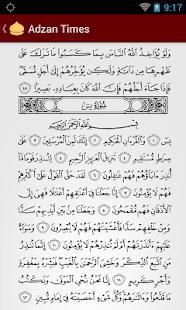 9:17
Adzan Times
وَلَوْ يُؤَاخِذُ ٱللَّهُ ٱلنَّاسَ بِمَا كَسَبُوا۟ مَا تَرَكَ عَلَىٰ
ظَهْرِهَا مِن دَآبَّةٍ وَلَٰكِن يُؤَخِّرُهُمْ إِلَىٰٓ أَجَلٍ مُّسَمًّى
فَإِذَا جَآءَ أَجَلُهُمْ فَإِنَّ ٱللَّهَ كَانَ بِعِبَادِهِۦ بَصِيرًۢا ٤٥
سُورَةُ يسٓ
بِسْمِ ٱللَّهِ ٱلرَّحْمَٰنِ ٱلرَّحِيمِ
يسٓ ١ وَٱلْقُرْءَانِ ٱلْحَكِيمِ ٢ إِنَّكَ لَمِنَ ٱلْمُرْسَلِينَ ٣ عَلَىٰ صِرَٰطٍ
مُّسْتَقِيمٍ ٤ تَنزِيلَ ٱلْعَزِيزِ ٱلرَّحِيمِ ٥ لِتُنذِرَ قَوْمًا مَّآ أُنذِرَ
ءَابَآؤُهُمْ فَهُمْ غَٰفِلُونَ ٦ لَقَدْ حَقَّ ٱلْقَوْلُ عَلَىٰٓ أَكْثَرِهِمْ فَهُمْ
لَا يُؤْمِنُونَ ٧ إِنَّا جَعَلْنَا فِىٓ أَعْنَٰقِهِمْ أَغْلَٰلًا فَهِىَ إِلَى
ٱلْأَذْقَانِ فَهُم مُّقْمَحُونَ ٨ وَجَعَلْنَا مِنۢ بَيْنِ أَيْدِيهِمْ سَدًّا
وَمِنْ خَلْفِهِمْ سَدًّا فَأَغْشَيْنَٰهُمْ فَهُمْ لَا يُبْصِرُونَ ٩ وَسَوَآءٌ
عَلَيْهِمْ ءَأَنذَرْتَهُمْ أَمْ لَمْ تُنذِرْهُمْ لَا يُؤْمِنُونَ ١٠ إِنَّمَا تُنذِرُ
مَنِ ٱتَّبَعَ ٱلذِّكْرَ وَخَشِىَ ٱلرَّحْمَٰنَ بِٱلْغَيْبِ فَبَشِّرْهُ بِمَغْفِرَةٍ
وَأَجْرٍ كَرِيمٍ ١١ إِنَّا نَحْنُ نُحْىِ ٱلْمَوْتَىٰ وَنَكْتُبُ
مَا قَدَّمُوا۟ وَءَاثَٰرَهُمْ وَكُلَّ شَىْءٍ أَحْصَيْنَٰهُ فِىٓ إِمَامٍ مُّبِينٍ ١٢